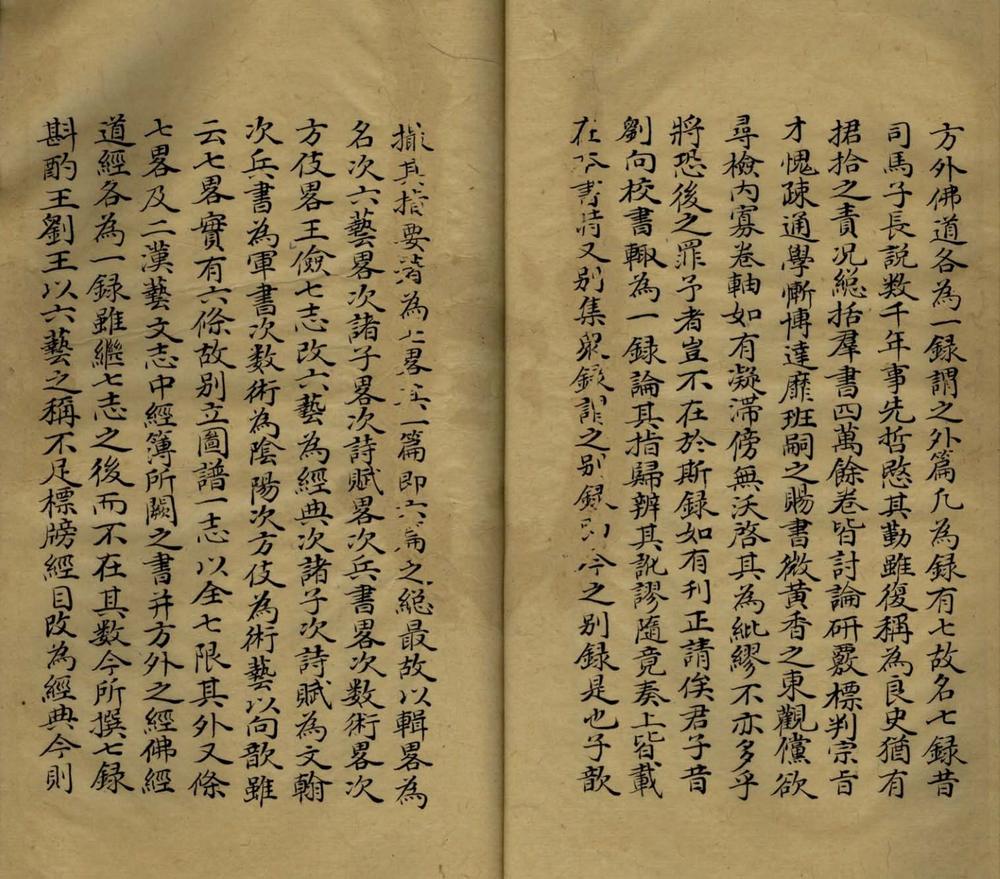 方外佛道各為一録謂之外篇凢為録有七故名七録昔
司馬子長説数千年事先哲愍其勤雖復稱為良史猶有
捃拾之責况緫括羣書四萬餘卷皆討論研覈標判宗旨
才愧踈通學慙博達靡班嗣之賜書微黄香之東觀儻欲
尋檢内寡卷軸如有凝滯傍無沃啓其為紕繆不亦多乎
將恐後之罪予者豈不在於斯録如有刊正請俟君子昔
劉向校書輙為一録論其指歸辨其訛謬隨竟奏上皆載
在本書時又别集衆録謂之别録即今之别録是也子歆
撮其指要著為七畧其一篇即六篇之緫最故以輯畧為
名次六藝畧次諸子畧次詩賦畧次兵書畧次数術畧次
方伎畧王儉七志改六藝為經典次諸子次詩賦為文翰
次兵書為軍書次数術為陰陽次方伎為術藝以向歆雖
云七畧實有六條故别立圖譜一志以全七限其外又條
七畧及二漢藝文志中經簿所闕之書并方外之經佛經
道經各為一録雖繼七志之後而不在其数今所撰七録
斟酌王劉王以六藝之稱不足標牓經目改為經典今則